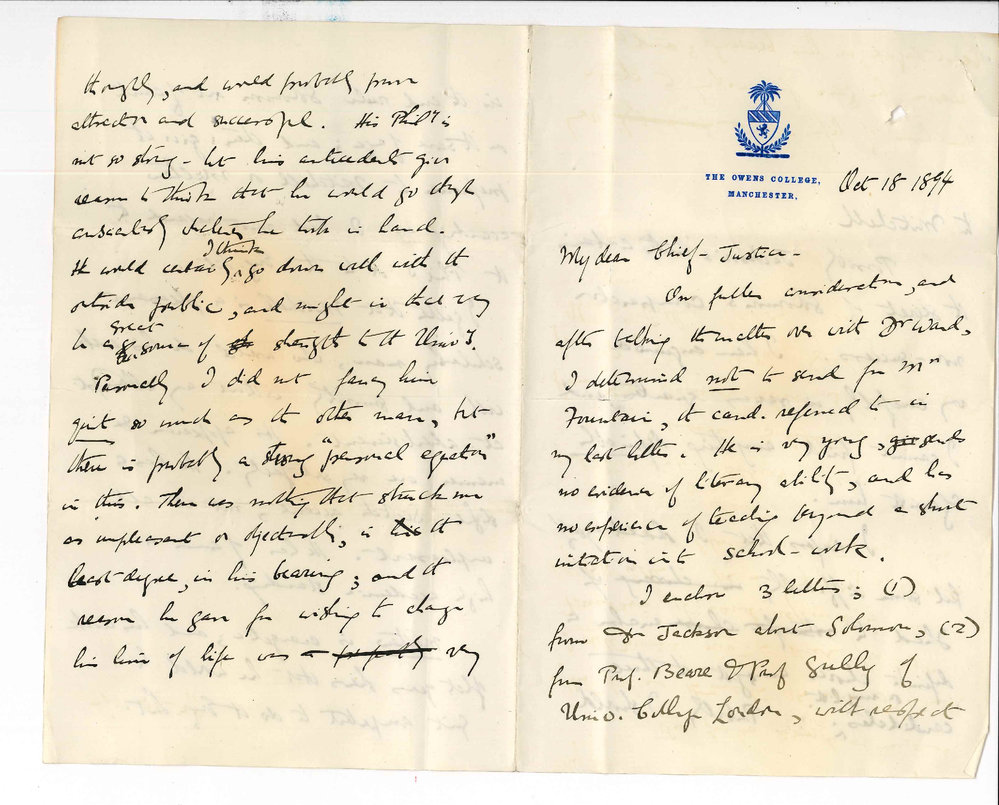 THE OWENS COLLEGE,
MANCHESTER.
Oct 18 1894
My dear Chief-Justice-
On fuller consideration, and
after talking the matter over with Dr Ward,
I determined not to send for Mr
Fountain, the cand. referred to in
my last letter. He is very young, sends
no evidence of literary ability, and has
no experience of teaching beyond a short
initiation into school-work.
I enclose 3 letters; (1)
from Dr Jackson about Solomon, (2)
from Prof. Beare & Prof of
Univ. College London, with respect
thought, and would probably prove
attractive and successful. His Phily is
not so strong - but his antecedents give
reason to think that he would go
he took in hand.
He would certainly, I think, go down well with the
outside public, and might in that way
be a great source of strength to the Univy.
Personally I did not fancy him
quite so much as the other man, but
there is probably a strong "personal equation"
in this. There was nothing that struck me
as unpleasant or objectionable, in the
least degree, in his bearing; and the
reason he gave for wishing to change
his line of life was very